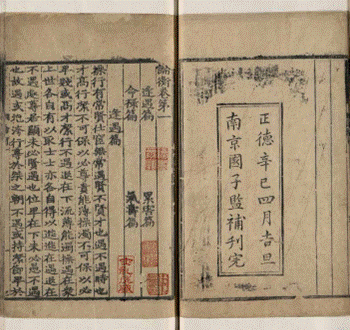 正德辛巳四月吉旦
南京國子監補刊完
論衡卷第一
逢遇篇 累害篇
命祿篇 氣壽篇
逢遇篇
操行有常賢仕宦無常遇賢不賢才也遇不遇時也
才高行潔不可保以必尊貴能薄操濁不可保以必
卑賤或高才潔行不遇退在下流薄能濁操遇在衆
上世各自有以取士士亦各自得以進進在遇退在
不遇處尊居顯未必賢遇也位卑在下未必愚不遇
也故遇或抱洿行尊於桀之朝不遇或持潔節卑